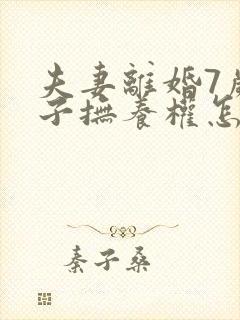 夫妻離婚7歲
子撫養權怎
秦子桑